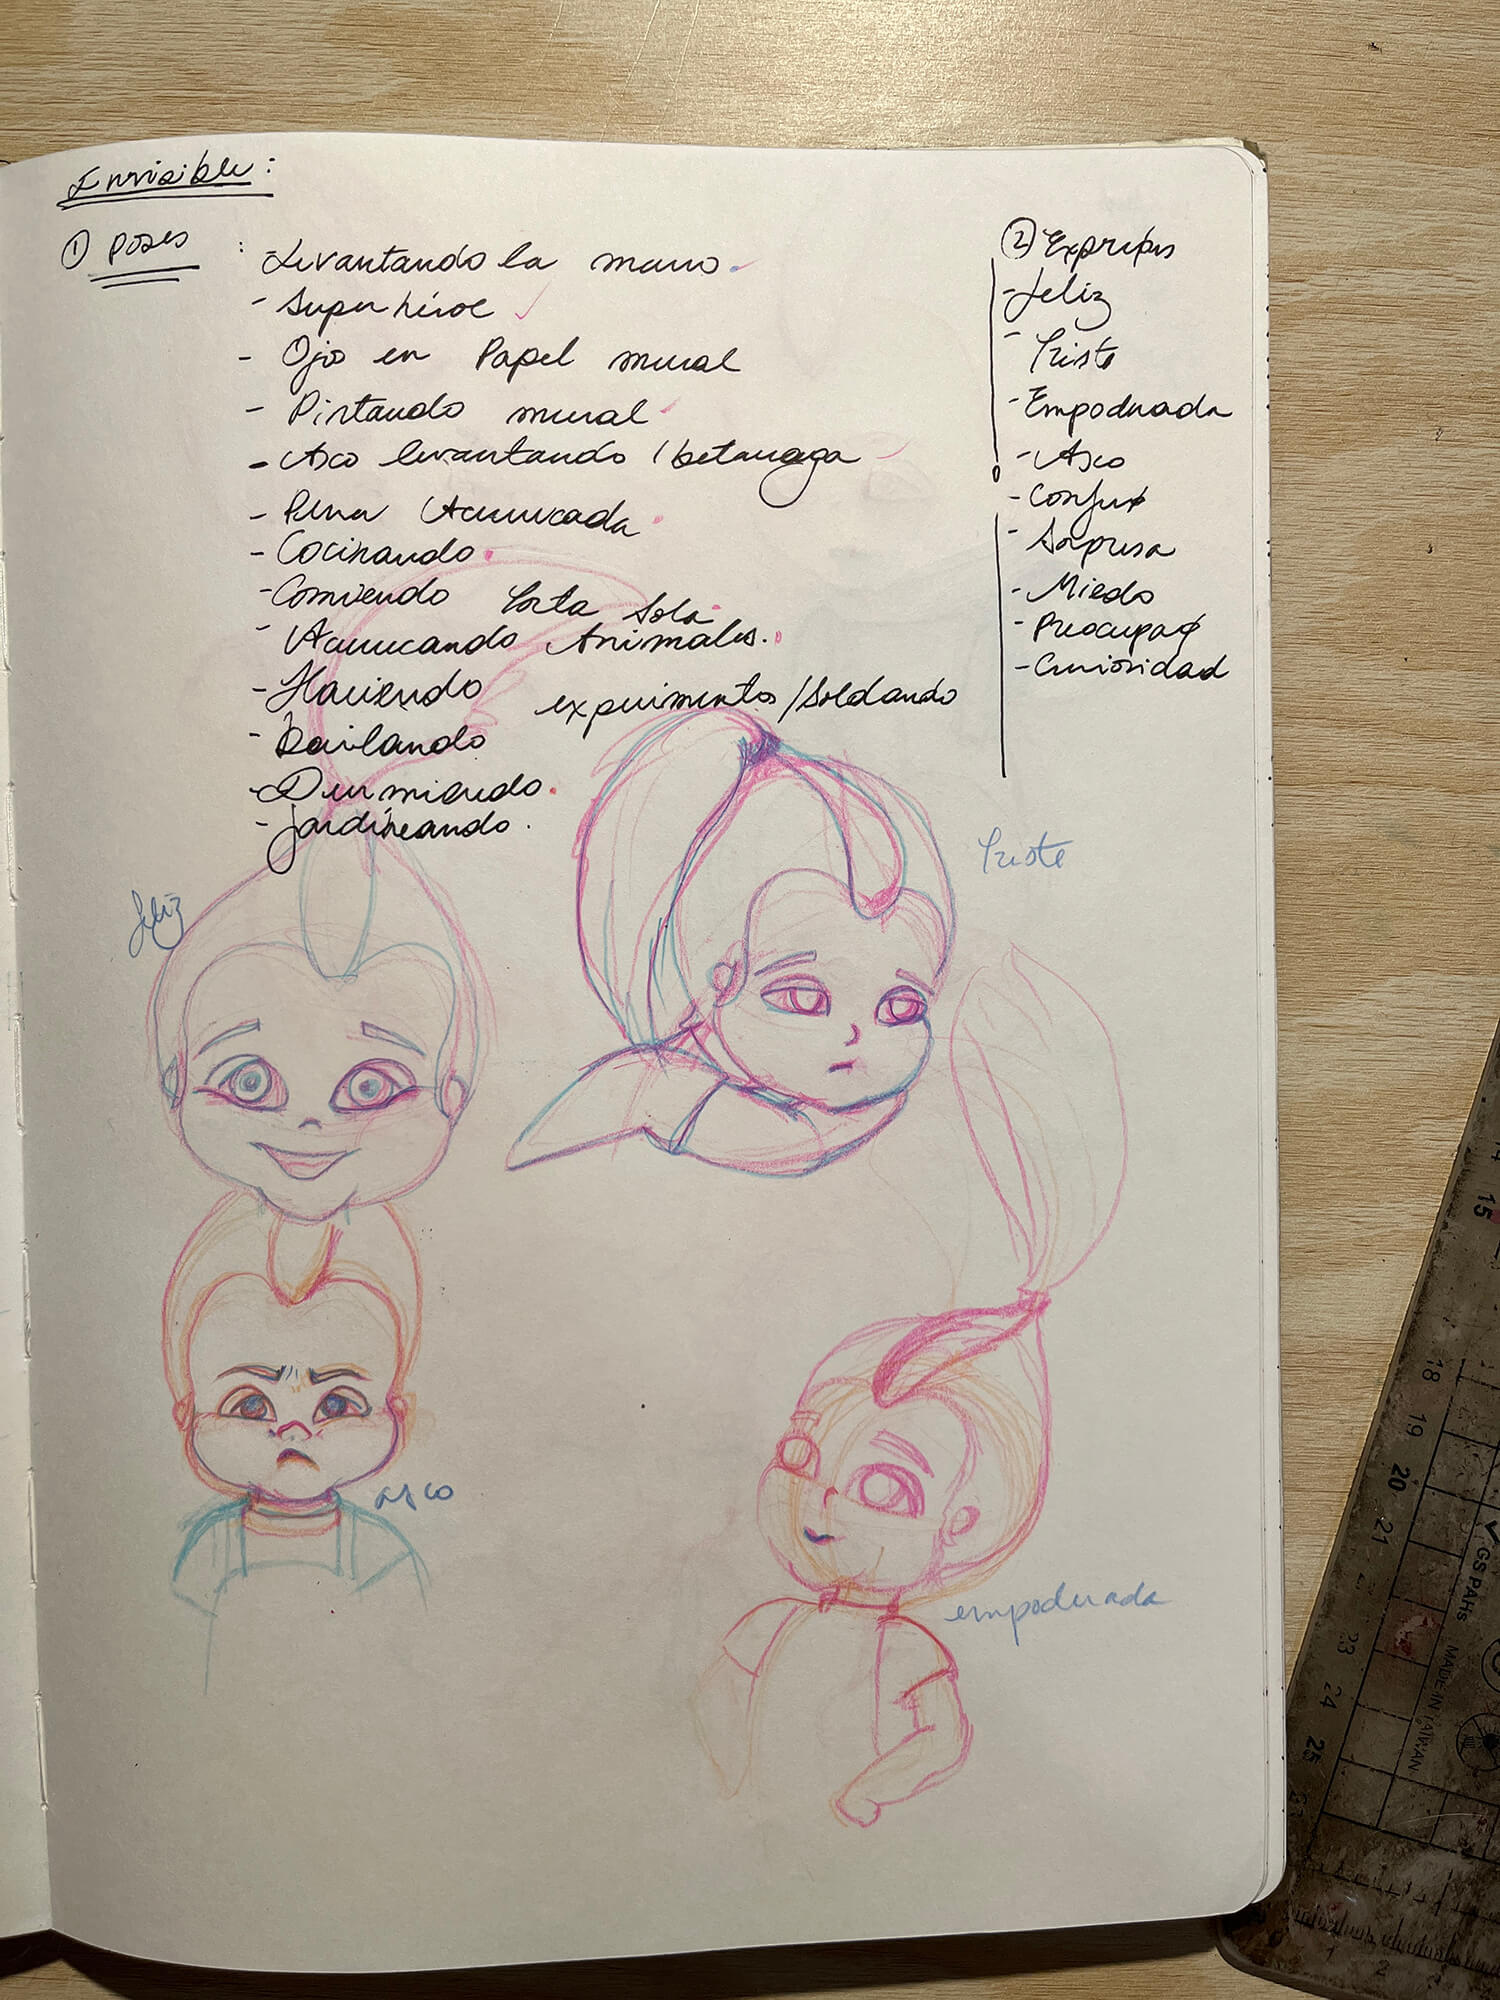 Invisible:
① Poses : Levantando la mano.
- Superhéroe
- Ojo en Papel mural
- Pintando mural
- Asco levantando / betarraga
- Pena Acurrucada
- Cocinando
- Comiendo torta sola
- Acurrucando Animales.
- Haciendo experimentos / Soldando
- Bailando
- Durmiendo
- Jardineando.
②
- feliz
- Triste
- Empoderada
- Asco
- Sorpresa
- Miedo
- Curiosidad
Triste
feliz
asco
empoderada
14
15
18
19
20
21
23
24
25
GS PAHs
MADE IN TAIWAN
1
2